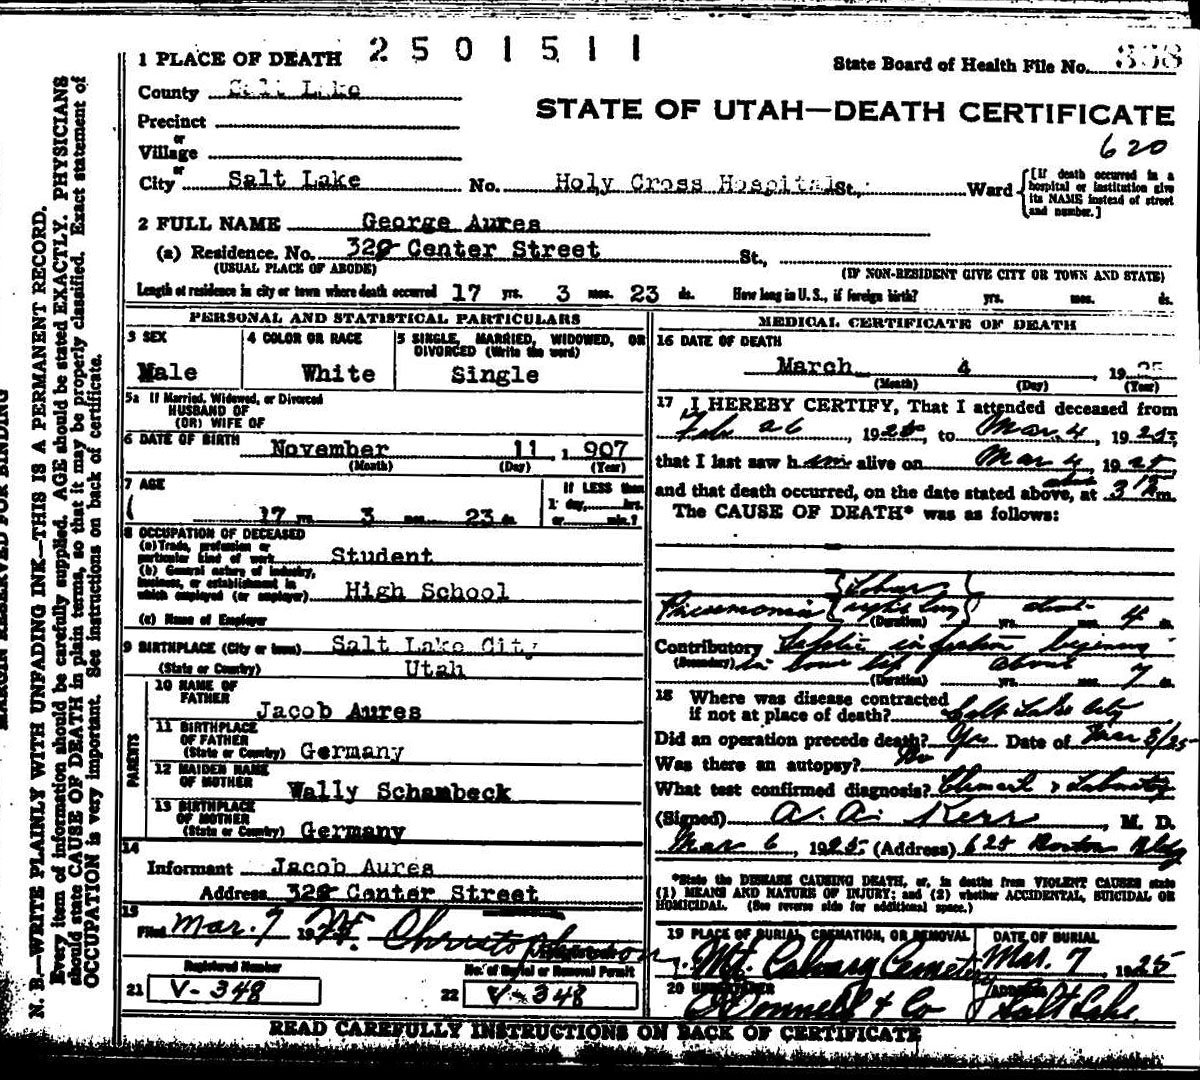 1 PLACE OF DEATH 2501511
State Board of Health File No. 338
County Salt Lake
STATE OF UTAH—DEATH CERTIFICATE
Precinct
or
620
Village
or
City Salt Lake No. Holy Cross Hospital St., Ward
[If death occurred in a hospital or institution give its NAME instead of street and number.]
2 FULL NAME George Aures
(a) Residence. No. 329 Center Street St.,
(USUAL PLACE OF ABODE) (IF NON-RESIDENT GIVE CITY OR TOWN AND STATE)
Length of residence in city or town where death occurred 17 yrs. 3 mos. 23 ds. How long in U. S., if foreign birth? yrs. mos. ds.
PERSONAL AND STATISTICAL PARTICULARS
3 SEX
Male
4 COLOR OR RACE
White
5 SINGLE, MARRIED, WIDOWED, OR
DIVORCED (Write the word)
Single
5a If Married, Widowed, or Divorced
HUSBAND OF
(OR) WIFE OF
6 DATE OF BIRTH November 11, 1907
(Month) (Day) (Year)
7 AGE
17 yrs. 3 mos. 23 ds.
If LESS than
1 day, hrs.
or min.?
8 OCCUPATION OF DECEASED
(a) Trade, profession or
particular kind of work Student
(b) General nature of industry,
business, or establishment in
which employed (or employer) High School
(c) Name of Employer
9 BIRTHPLACE (City or town) Salt Lake City
(State or Country) Utah
PARENTS
10 NAME OF
FATHER
Jacob Aures
11 BIRTHPLACE
OF FATHER
(State or Country) Germany
12 MAIDEN NAME
OF MOTHER
Wally Schambeck
13 BIRTHPLACE
OF MOTHER
(State or Country) Germany
14
Informant Jacob Aures
Address Center Street
15
Filed Mar. 7 19
Registered Number
21 V-348
No. of Burial or Removal Permit
22 V-348
MEDICAL CERTIFICATE OF DEATH
16 DATE OF DEATH
March 4 1925
(Month) (Day) (Year)
17 I HEREBY CERTIFY, That I attended deceased from
Feb 26, 1925, to Mar. 4, 1925,
that I last saw him alive on Mar 4 1925
and that death occurred, on the date stated above, at about 3 m.
The CAUSE OF DEATH* was as follows:
Pneumonia { Lobar right lung } about 4 ds.
(Duration) yrs. mos.
Contributory Septic infection beginning
(Secondary) in lower lip about 7 ds.
(Duration) yrs. mos.
18 Where was disease contracted
if not at place of death? Salt Lake City
Did an operation precede death? Yes Date of Mar 3/25
Was there an autopsy? No
What test confirmed diagnosis? Clinical & Laboratory
(Signed) A. A. Kerr, M. D.
Mar 6, 1925 (Address) 625 Boston Bldg
*State the DISEASE CAUSING DEATH, or, in deaths from VIOLENT CAUSES state
(1) MEANS AND NATURE OF INJURY; and (2) whether ACCIDENTAL, SUICIDAL OR
HOMICIDAL. (See reverse side for additional space.)
19 PLACE OF BURIAL, CREMATION, OR REMOVAL DATE OF BURIAL
Mt. Calvary Cemetery Mar. 7, 1925
20 UNDERTAKER ADDRESS
O'Donnell & Co Salt Lake
READ CAREFULLY INSTRUCTIONS ON BACK OF CERTIFICATE
MARGIN RESERVED FOR BINDING
N. B.—WRITE PLAINLY WITH UNFADING INK—THIS IS A PERMANENT RECORD.
Every item of information should be carefully supplied. AGE should be stated EXACTLY. PHYSICIANS
should state CAUSE OF DEATH in plain terms, so that it may be properly classified. Exact statement of
OCCUPATION is very important. See instructions on back of certificate.